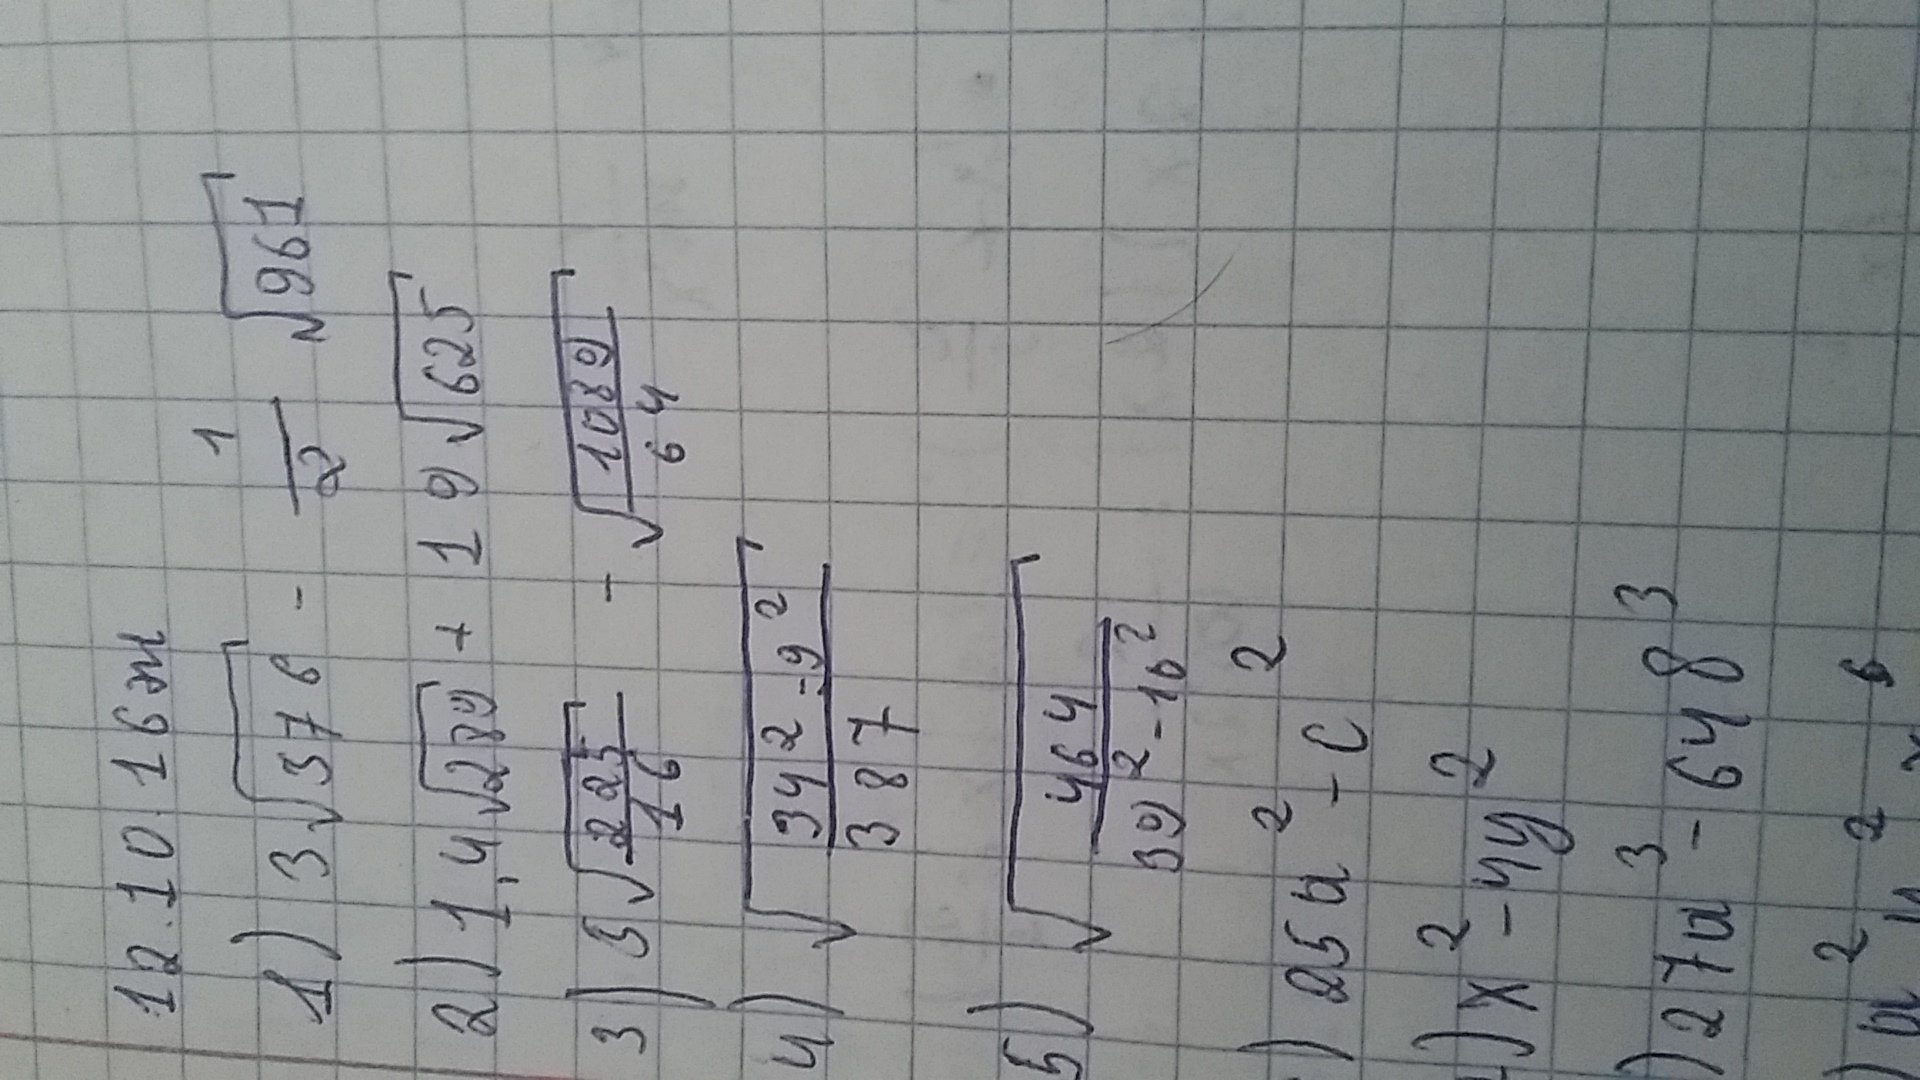 12.10.16 ж
1) 3√376 - 1/2 √961
2) 1,4√289 + 19√625
3) 5√(225/16) - √(1089/64)
4) √((342 - 9²)/387)
5) √(464/(39² - 16²))
) 25a² - c²
) x² - 4y²
) 27a³ - 648³